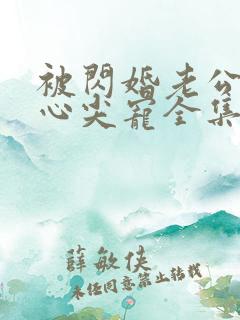 被閃婚老公
心尖寵全集
薛敏俠
未經同意禁止轉載